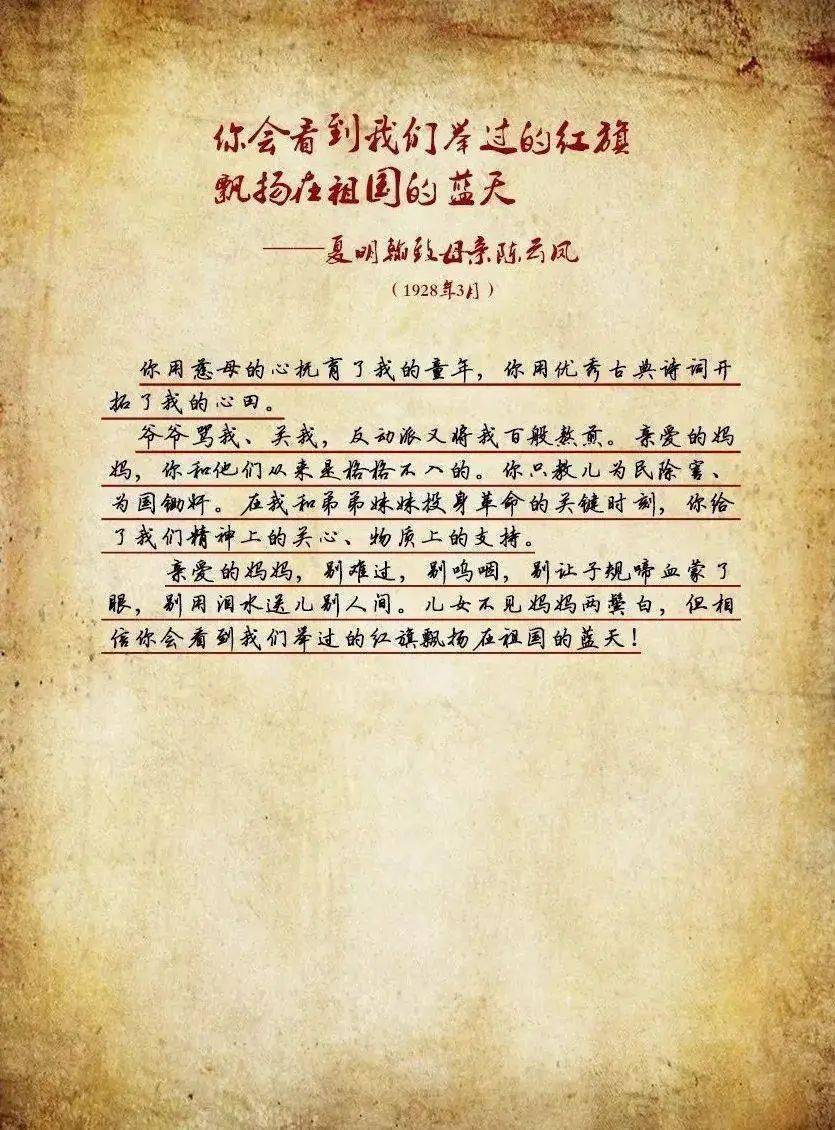 你会看到我们举过的红旗
飘扬在祖国的蓝天
——夏明翰致母亲陈云凤
（1928年3月）
你用慈母的心抚育了我的童年，你用优秀古典诗词开
拓了我的心田。
爷爷骂我、关我，反动派又将我百般熬煎。亲爱的妈
妈，你和他们从来是格格不入的。你只教儿为民除害、
为国锄奸。在我和弟弟妹妹投身革命的关键时刻，你给
了我们精神上的关心、物质上的支持。
亲爱的妈妈，别难过，别呜咽，别让子规啼血蒙了
眼，别用泪水送儿别人间。儿女不见妈妈两鬓白，但相
信你会看到我们举过的红旗飘扬在祖国的蓝天！